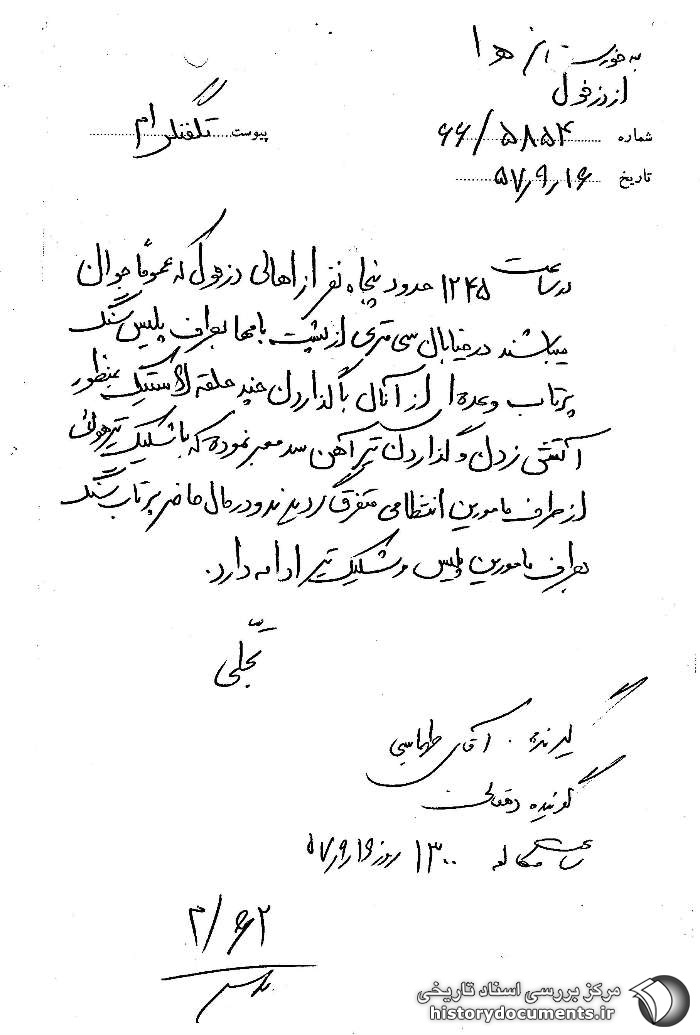 به خوزستان ه ۱
از دزفول
شماره ۶۶/۵۸۵۴
پیوست تلفنگرام
تاریخ ۵۷/۹/۱۶
در ساعت ۱۲۴۵ حدود پنجاه نفر از اهالی دزفول که عموماً جوان
میباشند در خیابان سی متری از پشت بامها بطرف پلیس سنگ
پرتاب و عده ای از آنان با گذاردن چند حلقه لاستیک بمنظور
آتش زدن و گذاردن تیر آهن سد معبر نموده که با شلیک تیر هوائی
از طرف مامورین انتظامی متفرق گردیدند و در حال حاضر پرتاب سنگ
بطرف مامورین پلیس و شلیک تیر ادامه دارد.
تجلی
گیرنده . آقای طهماسبی
گوینده دهقانی
ساعت مکالمه ۱۳۰۰ روز ۵۷/۹/۱۶
۶۲/م
مرکز بررسی اسناد تاریخی
historydocuments.ir